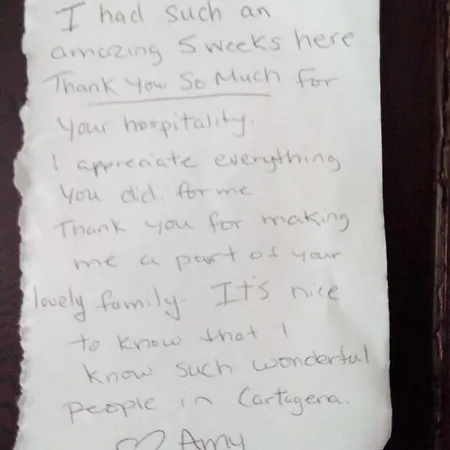 I had such an
amazing 5 weeks here
Thank You So Much for
your hospitality.
I appreciate everything
you did. for me
Thank you for making
me a part of your
lovely family. It's nice
to know that I
know such wonderful
people in Cartagena.
♡ Amy